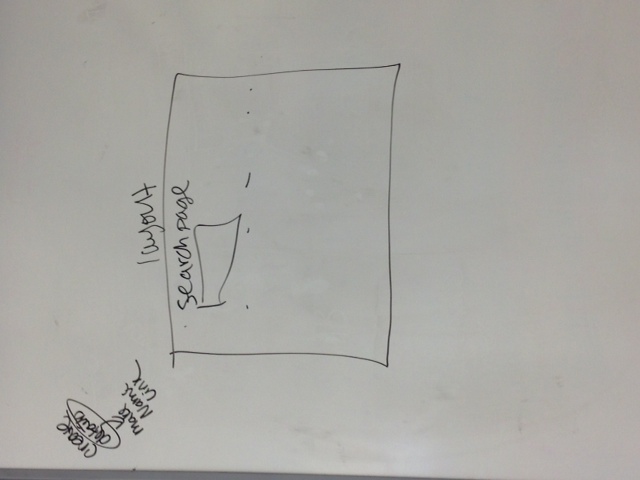 create
details
make
Name
Link
layout
search page